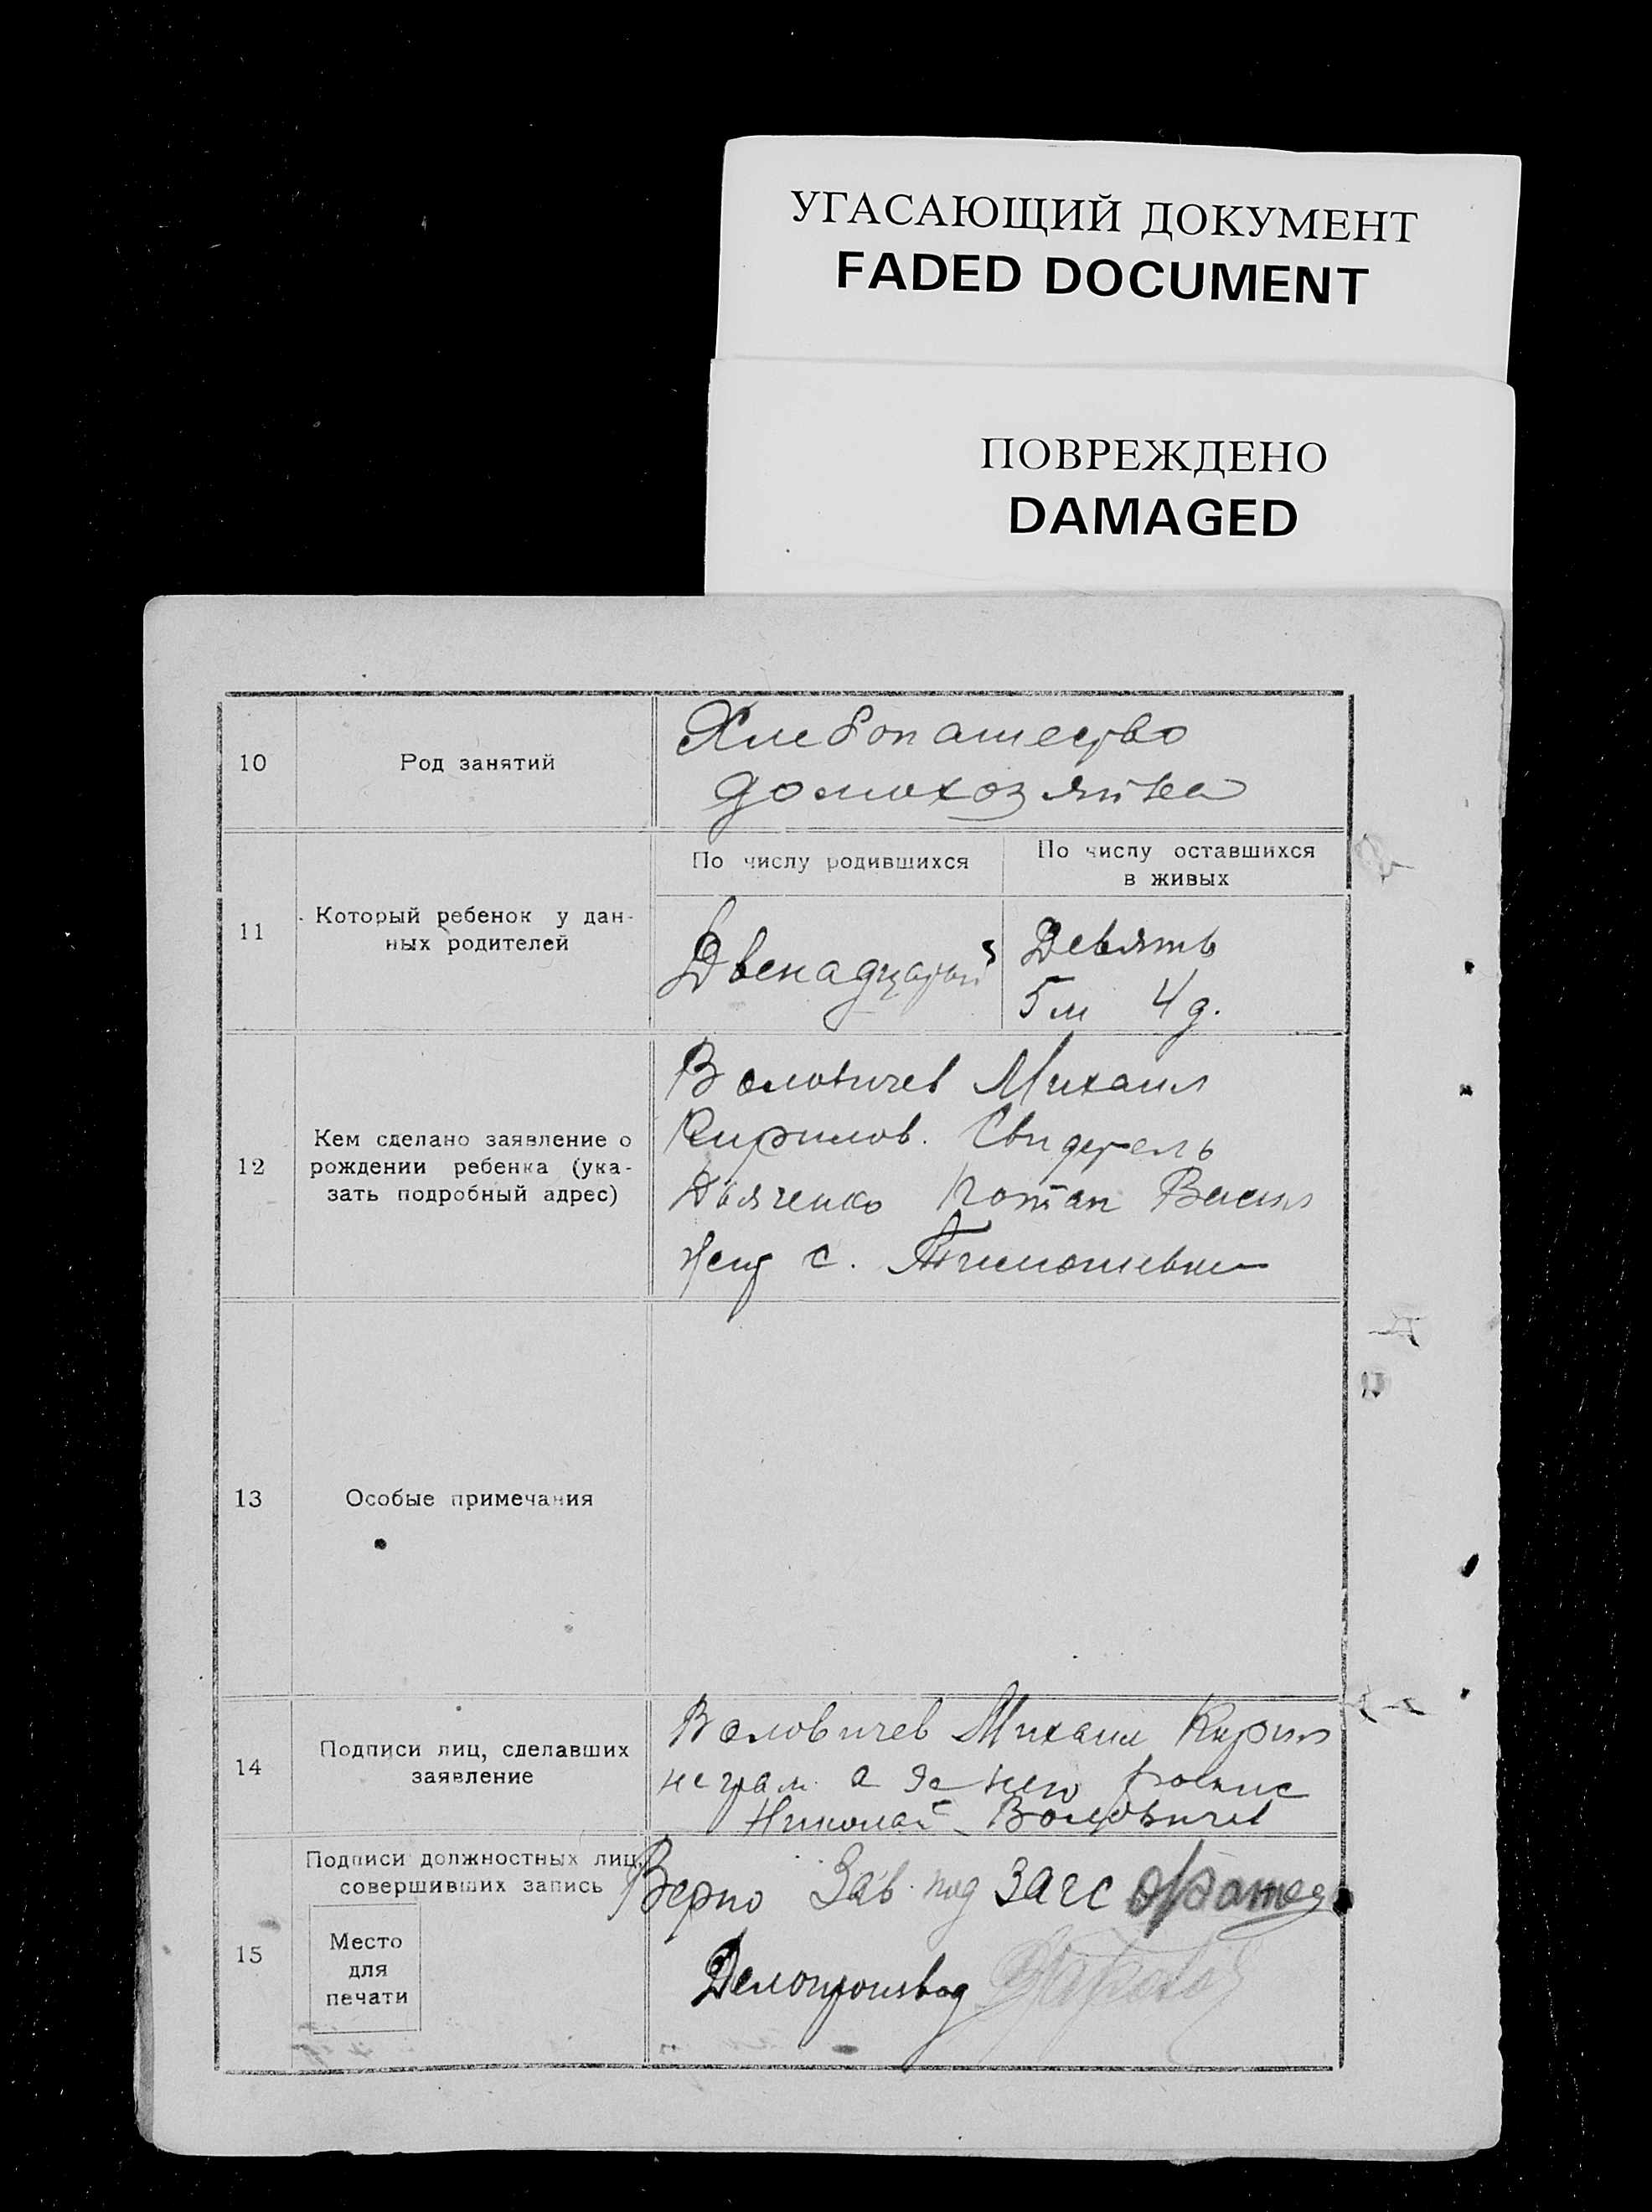 УГАСАЮЩИЙ ДОКУМЕНТ
FADED DOCUMENT
ПОВРЕЖДЕНО
DAMAGED
10
Род занятий
Хлебопашество
домохозяйка
11
Который ребенок у дан-
ных родителей
По числу родившихся
По числу оставшихся
в живых
Двенадцатый
Девять
5 м 4 д.
12
Кем сделано заявление о
рождении ребенка (ука-
зать подробный адрес)
Воловичев Михаил
Кирилов. Свидетель
Дьяченко Потап Васил
с. Тимошевки
13
Особые примечания
14
Подписи лиц, сделавших
заявление
Воловичев Михаил Кирил
не грам. а за него роспис
Николай Воловичев
15
Подписи должностных лиц,
совершивших запись
Место
для
печати
Верно Зав. под ЗАГС
Делопроизвод